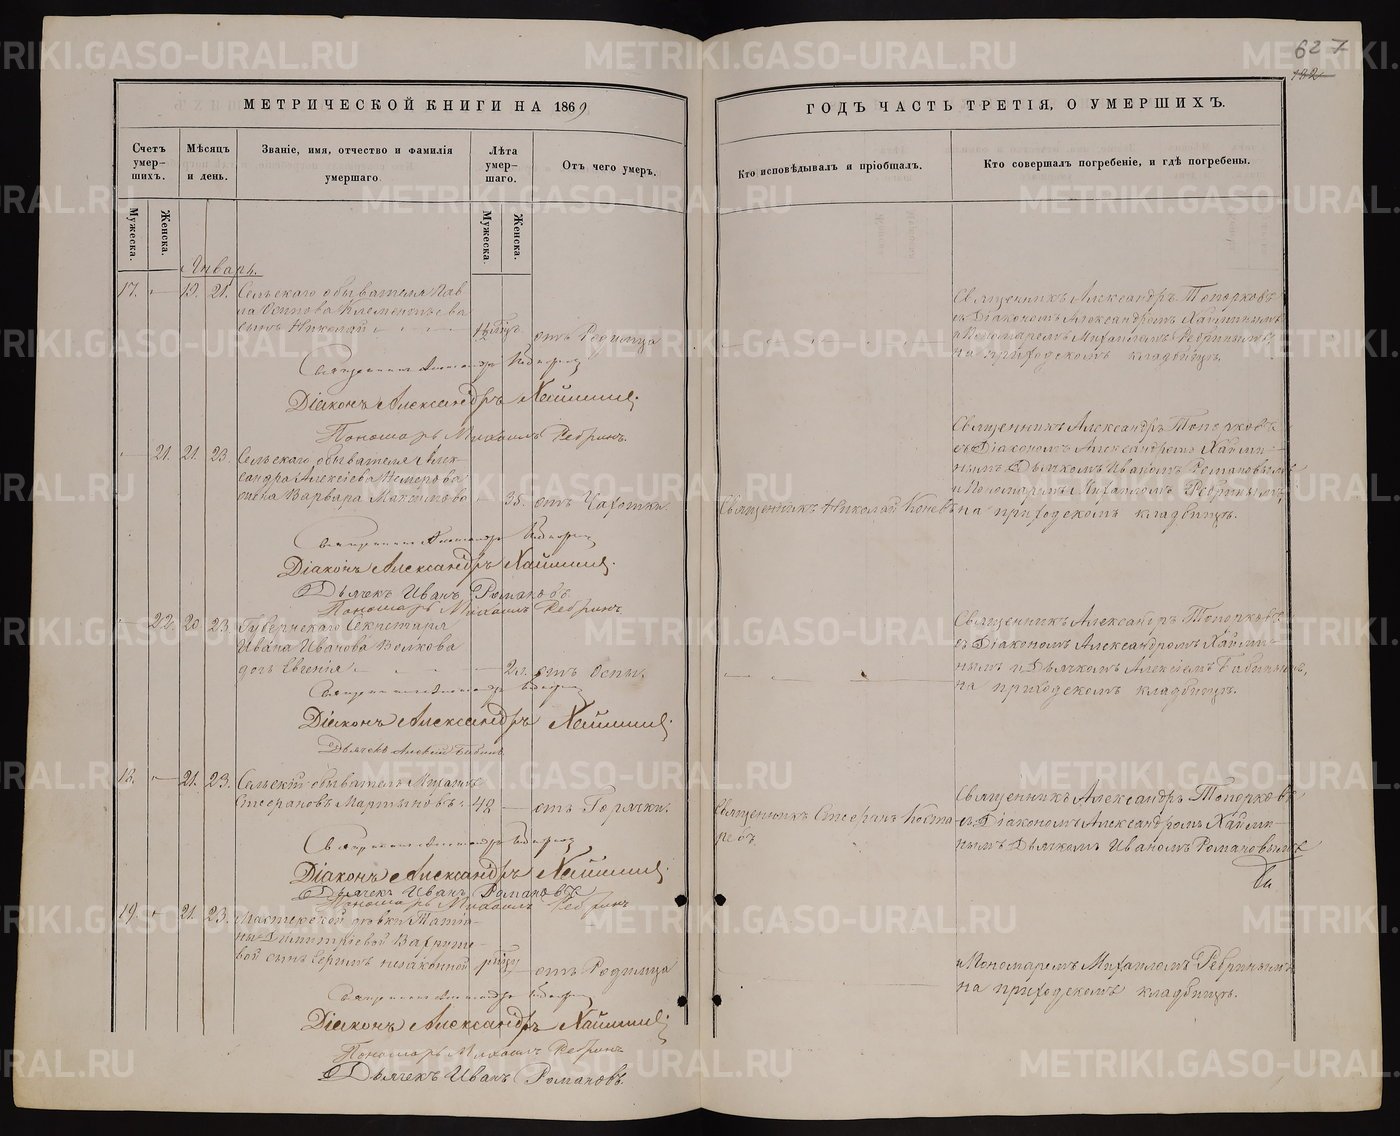 627
МЕТРИЧЕСКОЙ КНИГИ НА 1869
ГОДЪ ЧАСТЬ ТРЕТІЯ, О УМЕРШИХЪ.
Счетъ умер-шихъ.
Мѣсяцъ и день.
Званіе, имя, отчество и фамилія умершаго.
Лѣта умер-шаго.
Отъ чего умеръ.
Кто исповѣдывалъ и пріобщалъ.
Кто совершалъ погребеніе, и гдѣ погребены.
Мужеска.
Женска.
Мужеска.
Женска.
Январь.
17. 19. 21. Сельскаго обывателя Пав-
ла Осипова Клементьева
сынъ Николай
отъ Родимца
Священникъ Александръ Топорковъ
съ Діакономъ Александромъ Хайминымъ
и Пономаремъ Михаиломъ Ребринымъ,
на приходскомъ кладбищѣ.
Священникъ Александръ Топорковъ
Діаконъ Александръ Хайминъ.
Пономарь Михаилъ Ребринъ.
21. 21. 23. Сельскаго обывателя Алек-
сандра Алексѣева Немерова
жена Варвара Максимова 35. отъ Чахотки.
Священникъ Николай Коневъ
Священникъ Александръ Топорковъ
съ Діакономъ Александромъ Хайми-
нымъ Дьячкомъ Иваномъ Романовымъ
и Пономаремъ Михаиломъ Ребринымъ,
на приходскомъ кладбищѣ.
Священникъ Александръ Топорковъ
Діаконъ Александръ Хайминъ.
Дьячекъ Иванъ Романовъ.
Пономарь Михаилъ Ребринъ
22. 20. 23. Губернскаго Секретаря
Ивана Иванова Волкова
дочь Евгенія 2 л. отъ Оспы.
Священникъ Александръ Топорковъ
съ Діакономъ Александромъ Хайми-
нымъ и Дьячкомъ Алексѣемъ Бабинымъ,
на приходскомъ кладбищѣ.
Священникъ Александръ Топорковъ
Діаконъ Александръ Хайминъ.
Дьячекъ Алексѣй Бабинъ
18. 21. 23. Сельскій обыватель
Стефановъ Мартыновъ 48 отъ Горячки.
Священникъ Стефанъ Коста-
ревъ.
Священникъ Александръ Топорковъ
съ Діакономъ Александромъ Хайми-
нымъ Дьячкомъ Иваномъ Романовымъ
Священникъ Александръ Топорковъ
Діаконъ Александръ Хайминъ.
Дьячекъ Иванъ Романовъ
Пономарь Михаилъ Ребринъ
19. 21. 23. Мастерской дѣвки Татья-
ны Димитріевой
вой сынъ незаконной
отъ Родимца
и Пономаремъ Михаиломъ Ребринымъ
на приходскомъ кладбищѣ.
Священникъ Александръ Топорковъ
Діаконъ Александръ Хайминъ.
Пономарь Михаилъ Ребринъ
Дьячекъ Иванъ Романовъ.
METRIKI.GASO-URAL.RU